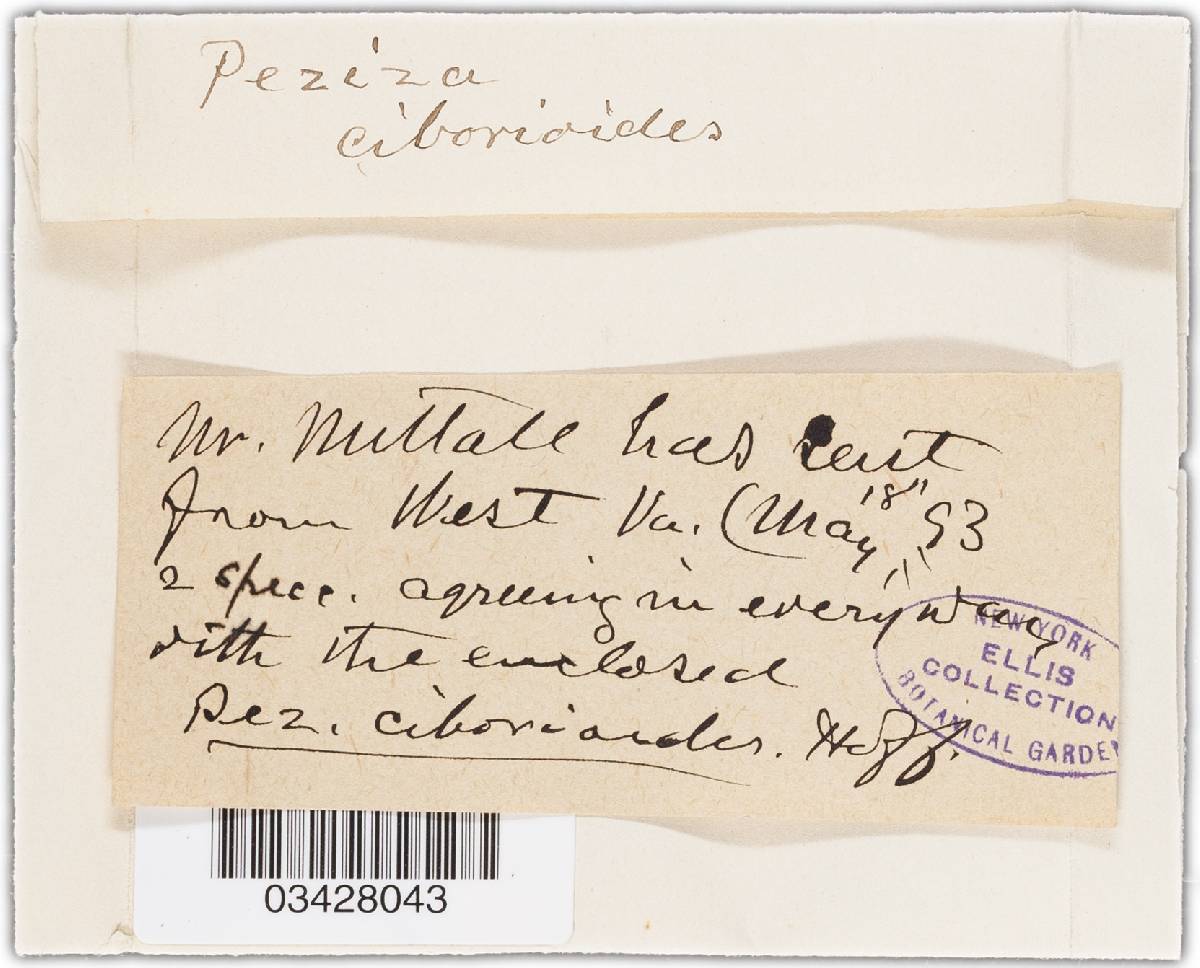 Peziza
ciborioides
Mr. Nuttall has sent
from West Va. (May "18" 93
2 spec. agreeing in every way
with the enclosed
Pez. ciborioides. Hoff.
NEW YORK
ELLIS
COLLECTION
BOTANICAL GARDEN
03428043